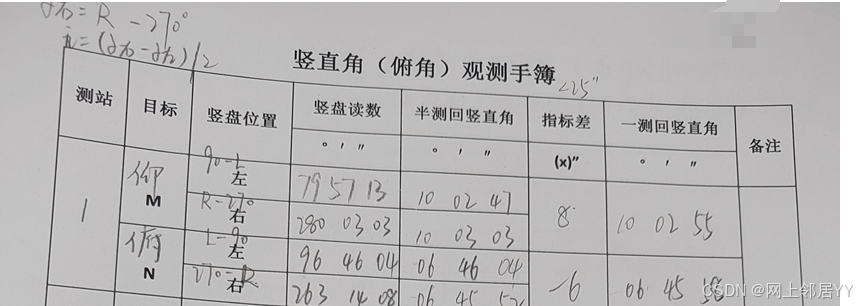 α右 = R - 270°
i = (α右 - α左)/2
竖直角（俯角）观测手簿
<25"
测站 目标 竖盘位置 竖盘读数 半测回竖直角 指标差 一测回竖直角 备注
° ′ ″ ° ′ ″ (x)″ ° ′ ″
1 仰 M 90-L 左 79 57 13 10 02 47 8 10 02 55
R-270 右 280 03 03 10 03 03
俯 N L-90 左 96 46 04 06 46 04 -6 06 45 58
270-R 右 263 14 08 06 45 52
CSDN @网上邻居YY